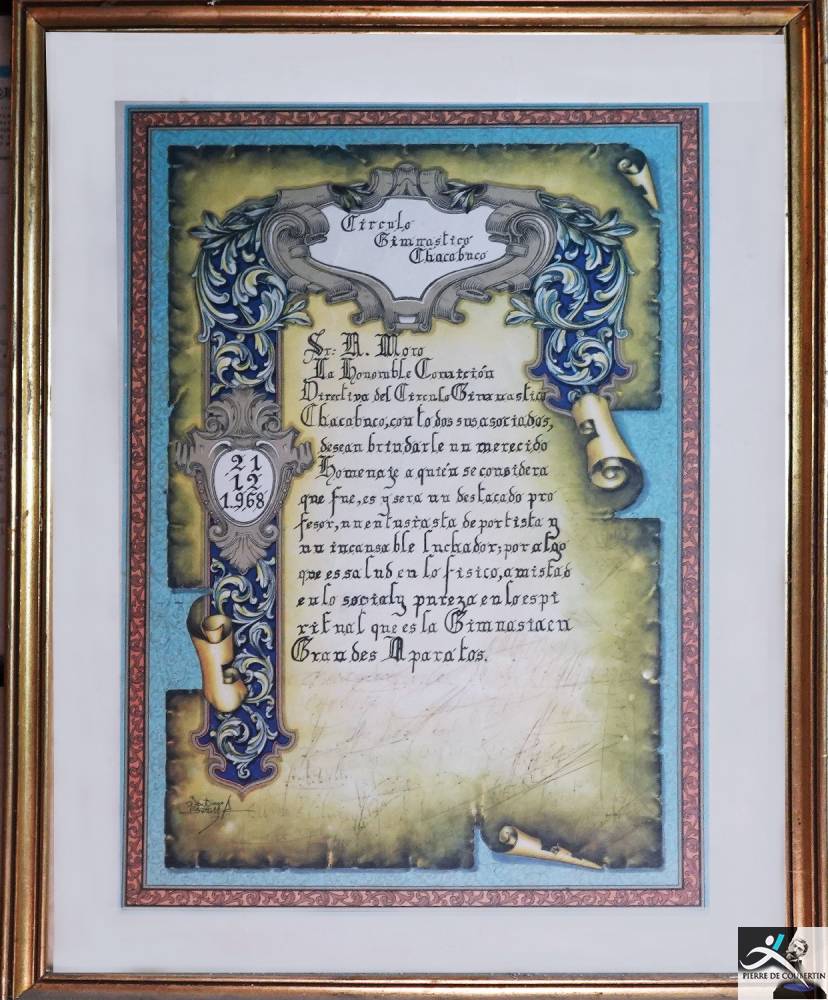 Circulo
Gimnastico
Chacabuco
Sr: A. Moro
La Honorable Comición
Directiva del Circulo Gimnastico
Chacabuco, con todos sus asociados,
desean brindarle un merecido
Homenaje a quién se considera
que fue, es y sera un destacado pro
fesor, un entusiasta deportista y
un incansable luchador; por algo
que es salud en lo fisico, amistad
en lo social y pureza en lo espi
ritual que es la Gimnasia en
Grandes Aparatos.
21
12
1.968
PIERRE DE COUBERTIN